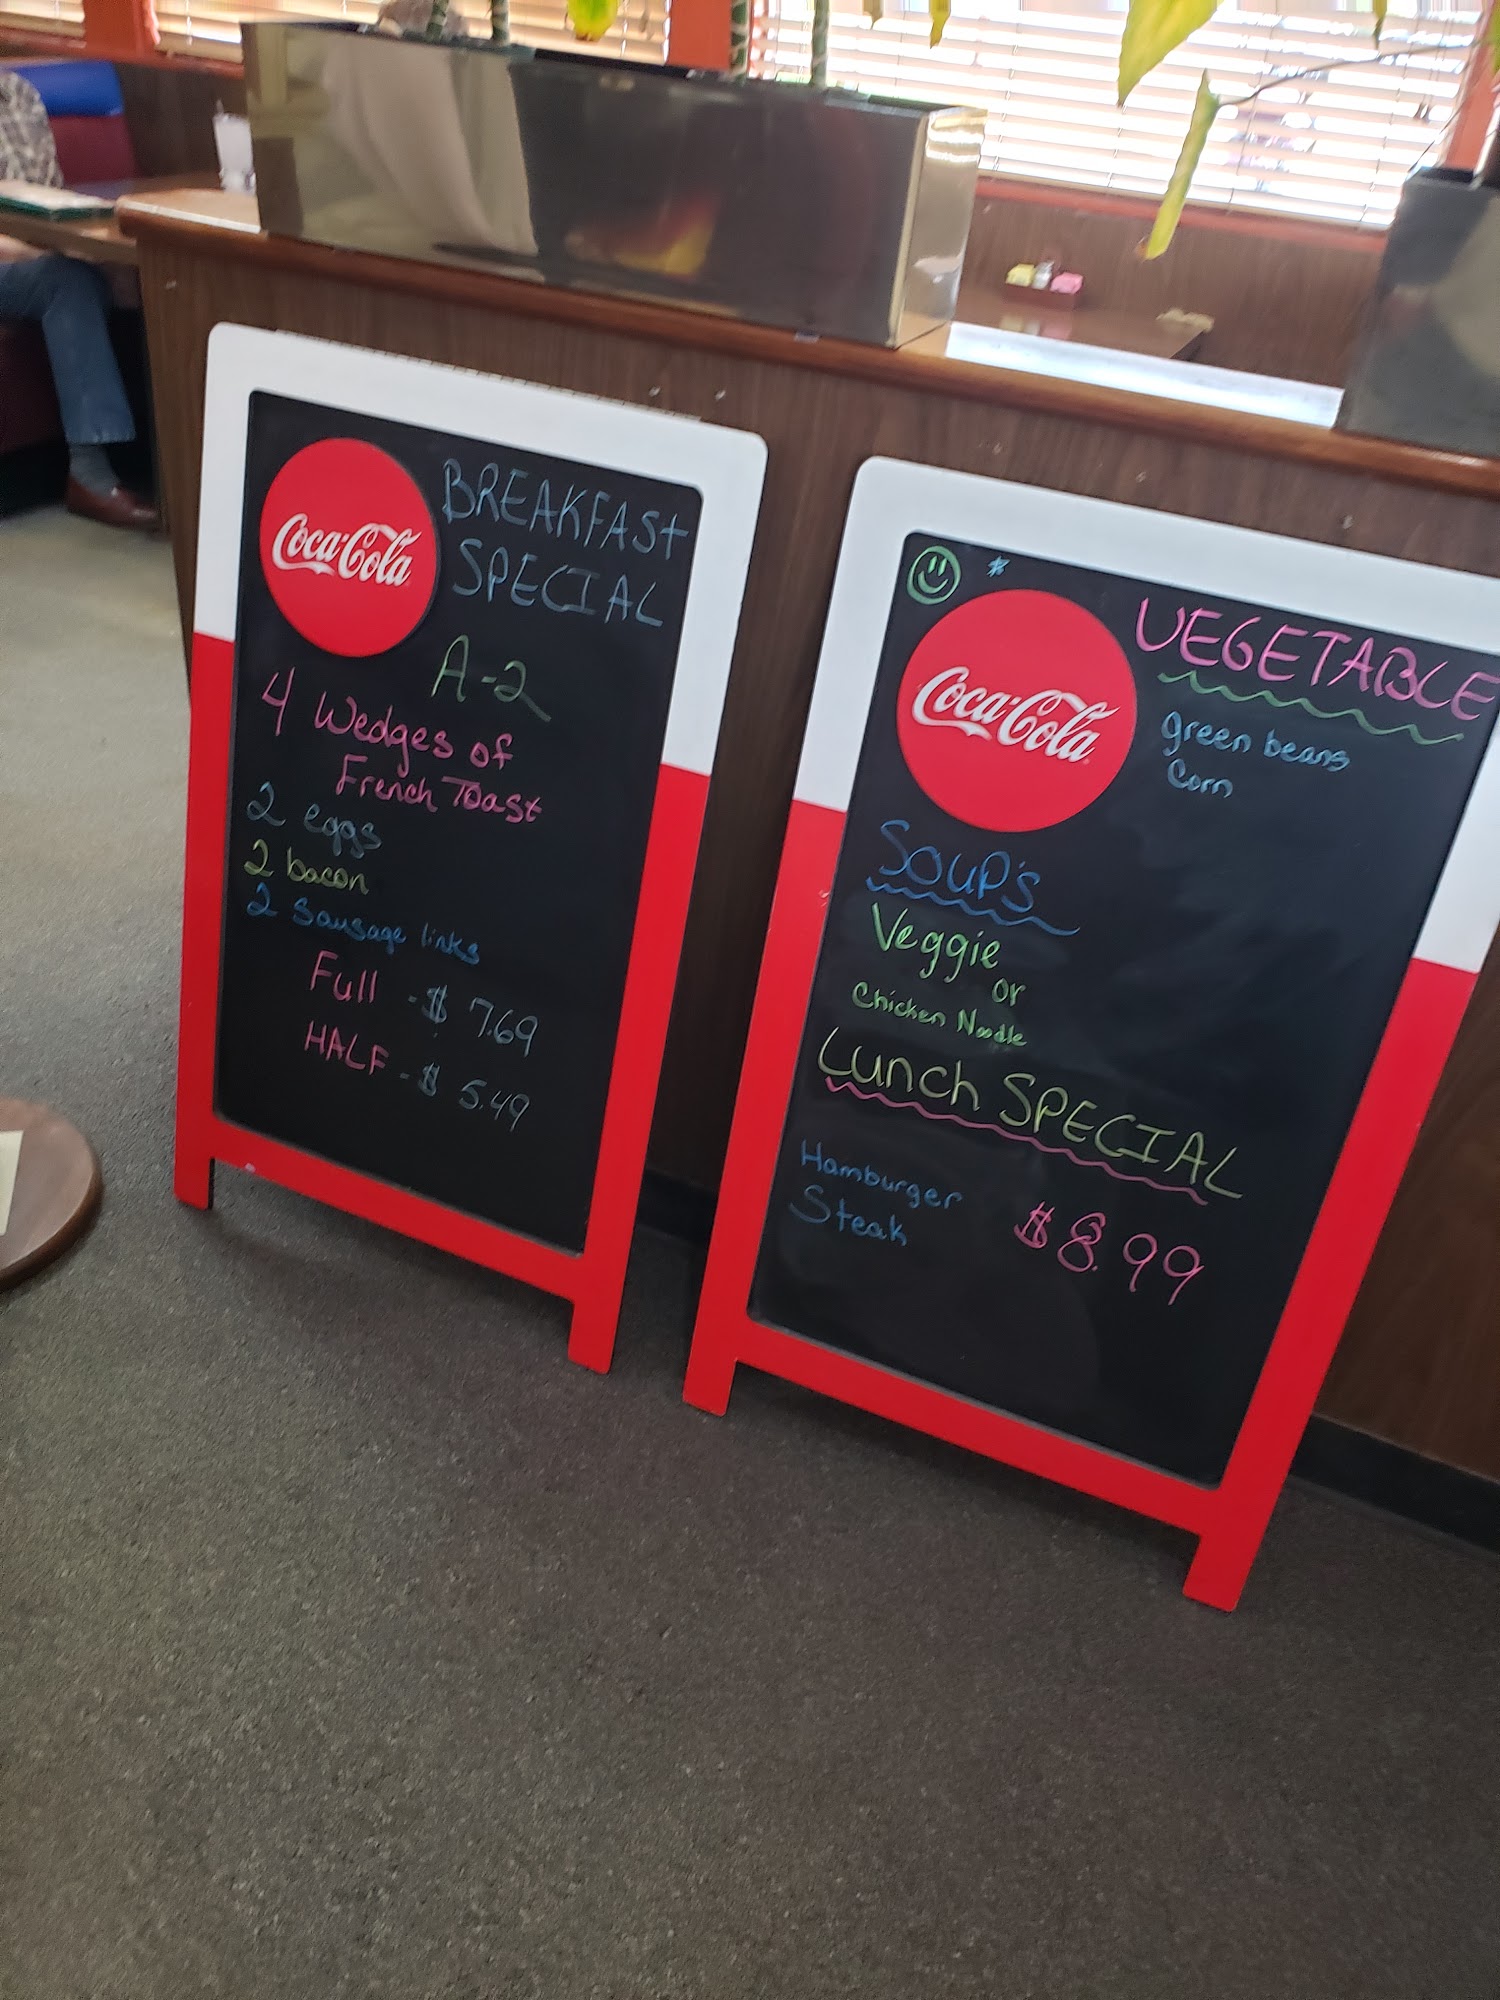 Coca-Cola
BREAKFASt
SPECIAL
A-2
4 Wedges of
French Toast
2 eggs
2 bacon
2 Sausage links
Full - $ 7.69
HALF - $ 5.49
*
Coca-Cola
VEGETABLE
green beans
Corn
SOUP's
Veggie
or
Chicken Noodle
Lunch SPECIAL
Hamburger
Steak
$8.99